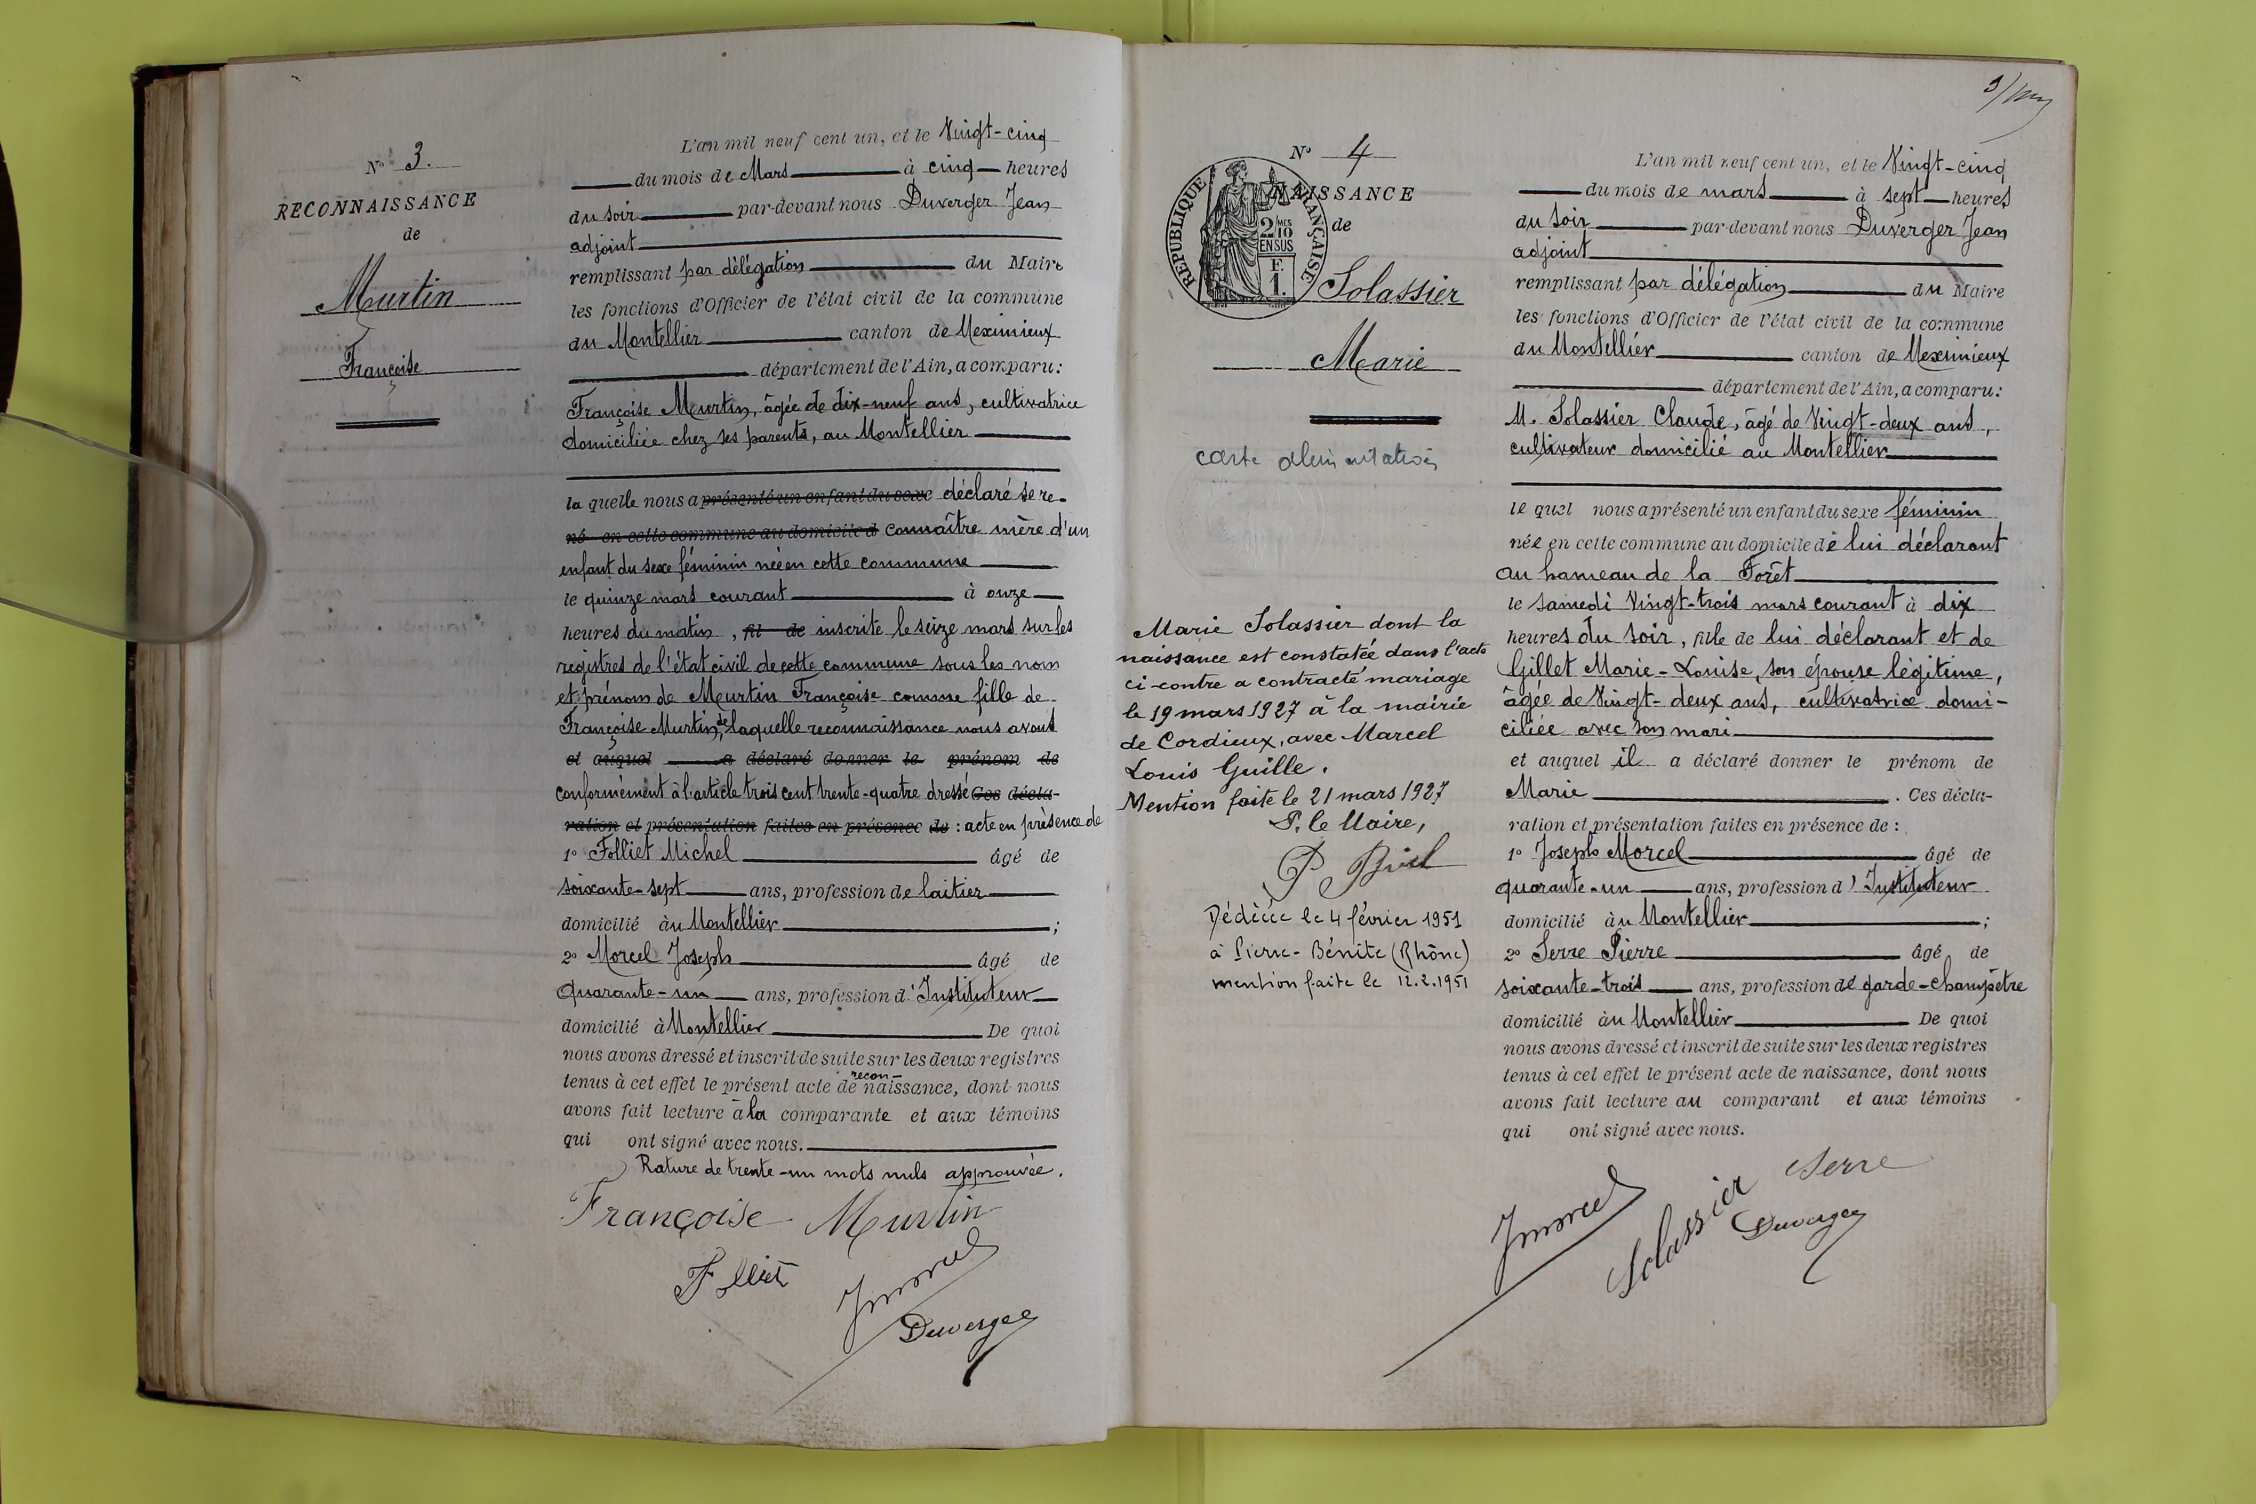 N° 3.
RECONNAISSANCE
de
Murtin
Françoise
L'an mil neuf cent un, et le Vingt-cinq
du mois de Mars à cinq heures
du soir par-devant nous Duverger Jean
adjoint
remplissant par délégation du Maire
les fonctions d'Officier de l'état civil de la commune
du Montellier canton de Meximieux
département de l'Ain, a comparu:
Françoise Murtin, âgée de dix-neuf ans, cultivatrice
domiciliée chez ses parents, au Montellier
la quelle nous a présenté un enfant du sexe déclaré se re-
né en cette commune au domicile d connaître mère d'un
enfant du sexe féminin née en cette commune
le quinze mars courant à onze
heures du matin, fil de inscrite le seize mars sur les
registres de l'état civil de cette commune sous les nom
et prénom de Meurtin Françoise comme fille de
Françoise Murtin, de laquelle reconnaissance nous avons
et auquel a déclaré donner le prénom de
conformément à l'article trois cent trente-quatre dressé Ces décla-
ration et présentation faites en présence de : acte en présence de
1° Folliet Michel âgé de
soixante-sept ans, profession de laitier
domicilié au Montellier ;
2° Morcel Joseph âgé de
Quarante-un ans, profession d'Instituteur
domicilié à Montellier De quoi
nous avons dressé et inscrit de suite sur les deux registres
tenus à cet effet le présent acte de recon-naissance, dont nous
avons fait lecture à la comparante et aux témoins
qui ont signé avec nous.
Rature de trente-un mots nuls approuvée.
Françoise Murtin
Folliet
Jmorcel
Duverger
N° 4
NAISSANCE
de
RÉPUBLIQUE FRANÇAISE
2/10 MES
EN SUS
F.
1.
Solassier
Marie
carte alimentation
Marie Solassier dont la
naissance est constatée dans l'acte
ci-contre a contracté mariage
le 19 mars 1927 à la mairie
de Cordieux, avec Marcel
Louis Guille.
Mention faite le 21 mars 1927
P. le Maire,
Dédèée le 4 février 1951
à Pierre-Bénite (Rhône)
mention faite le 12.2.1951
L'an mil neuf cent un, et le Vingt-cinq
du mois de mars à sept heures
du soir par-devant nous Duverger Jean
adjoint
remplissant par délégation du Maire
les fonctions d'Officier de l'état civil de la commune
du Montellier canton de Meximieux
département de l'Ain, a comparu:
M. Solassier Claude, âgé de Vingt-deux ans,
cultivateur domicilié au Montellier
le quel nous a présenté un enfant du sexe féminin
née en cette commune au domicile de lui déclarant
au hameau de la Forêt
le samedi Vingt-trois mars courant à dix
heures du soir, fille de lui déclarant et de
Gillet Marie-Louise, son épouse légitime,
âgée de Vingt-deux ans, cultivatrice domi-
ciliée avec son mari
et auquel il a déclaré donner le prénom de
Marie . Ces décla-
ration et présentation faites en présence de :
1° Joseph Morcel âgé de
quarante-un ans, profession d'Instituteur
domicilié au Montellier ;
2° Serre Pierre âgé de
soixante-trois ans, profession de garde-champêtre
domicilié au Montellier De quoi
nous avons dressé et inscrit de suite sur les deux registres
tenus à cet effet le présent acte de naissance, dont nous
avons fait lecture au comparant et aux témoins
qui ont signé avec nous.
Jmorcel
Solassier
Serre
Duverger